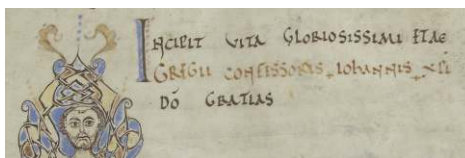 INCIPIT VITA GLORIOSISSIMI ETAE
GREGII CONFESSORIS IOHANNIS XPI
DŌ GRATIAS